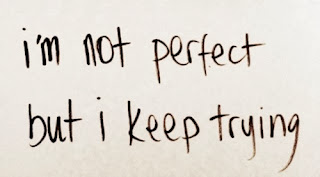 i'm not perfect
but i keep trying